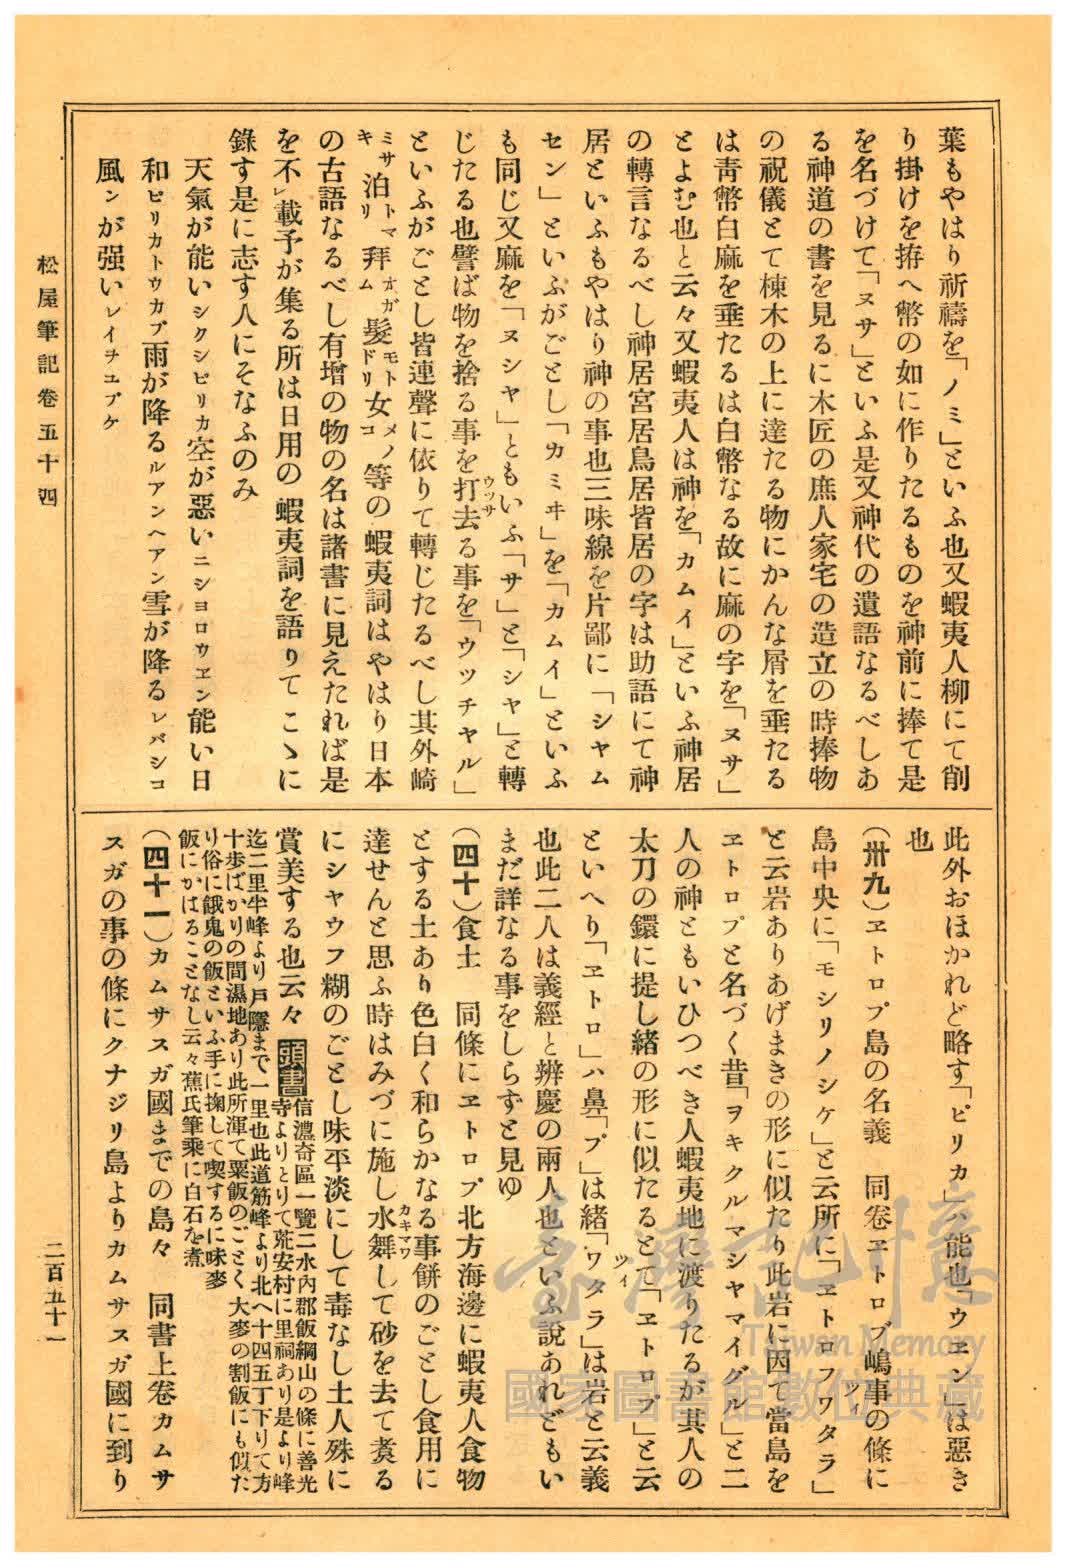 葉もやはり祈禱を「ノミ」といふ也又蝦夷人柳にて削
り掛けを拵へ幣の如に作りたるものを神前に捧て是
を名づけて「ヌサ」といふ是又神代の遺語なるべしあ
る神道の書を見るに木匠の庶人家宅の造立の時捧物
の祝儀とて棟木の上に達たる物にかんな屑を垂たる
は靑幣白麻を垂たるは白幣なる故に麻の字を「ヌサ」
とよむ也と云々又蝦夷人は神を「カムイ」といふ神居
の轉言なるべし神居宮居鳥居皆居の字は助語にて神
居といふもやはり神の事也三味線を片鄙に「シヤム
セン」といふがごとし「カミヰ」を「カムイ」といふ
も同じ又麻を「ヌシヤ」ともいふ「サ」と「シヤ」と轉
じたる也譬ば物を捨る事を打去ウツサる事を「ウツチヤル」
といふがごとし皆連聲に依りて轉じたるべし其外崎
ミサキ泊トマリ拜オガム髮モトドリ女メノコ等の蝦夷詞はやはり日本
の古語なるべし有增の物の名は諸書に見えたれば是
を不レ載予が集る所は日用の蝦夷詞を語りてこゝに
錄す是に志す人にそなふのみ
天氣が能いシクシピリカ空が惡いニシヨロウヱン能い日
和ピリカトウカプ雨が降るルアンヘアン雪が降るレバシコ
風ンが强いレイチユプケ
此外おほかれど略す「ピリカ」ハ能也「ウヱン」は惡き
也
(卅九)ヱトロプ島の名義 同卷ヱトロプ嶋事の條に
島中央に「モシリノシケ」と云所に「ヱトロフワタラ」ツイ
と云岩ありあげまきの形に似たり此岩に因て當島を
ヱトロプと名づく昔「ヲキクルマシヤマイグル」と二
人の神ともいひつべき人蝦夷地に渡りたるが其人の
太刀の鐶に提し緖の形に似たるとて「ヱトロプ」と云
といへり「ヱトロ」ハ鼻「プ」は緖「ワタラ」ツイは岩と云義
也此二人は義經と辨慶の兩人也といふ說あれどもい
まだ詳なる事をしらずと見ゆ
(四十)食土 同條にヱトロプ北方海邊に蝦夷人食物
とする土あり色白く和らかなる事餅のごとし食用に
達せんと思ふ時はみづに施し水舞カキマワして砂を去て煑る
にシヤウフ糊のごとし味平淡にして毒なし土人殊に
賞美する也云々 頭書信濃奇區一覽二水內郡飯綱山の條に善光
寺よりとりて荒安村に里祠あり是より峰
迄二里半峰より戸隱まで一里也此道筋峰より北へ十四五丁下りて方
十步ばかりの間濕地あり此所渾て粟飯のごとく大麥の割飯にも似た
り俗に餓鬼の飯といふ手に掬して喫するに味麥
飯にかはることなし云々蕉氏筆乘に白石を煮
(四十一)カムサスガ國までの島々 同書上卷カムサ
スガの事の條にクナジリ島よりカムサスガ國に到り
松屋筆記卷五十四
二百五十一
臺灣記憶
Taiwan Memory
國家圖書館數位典藏